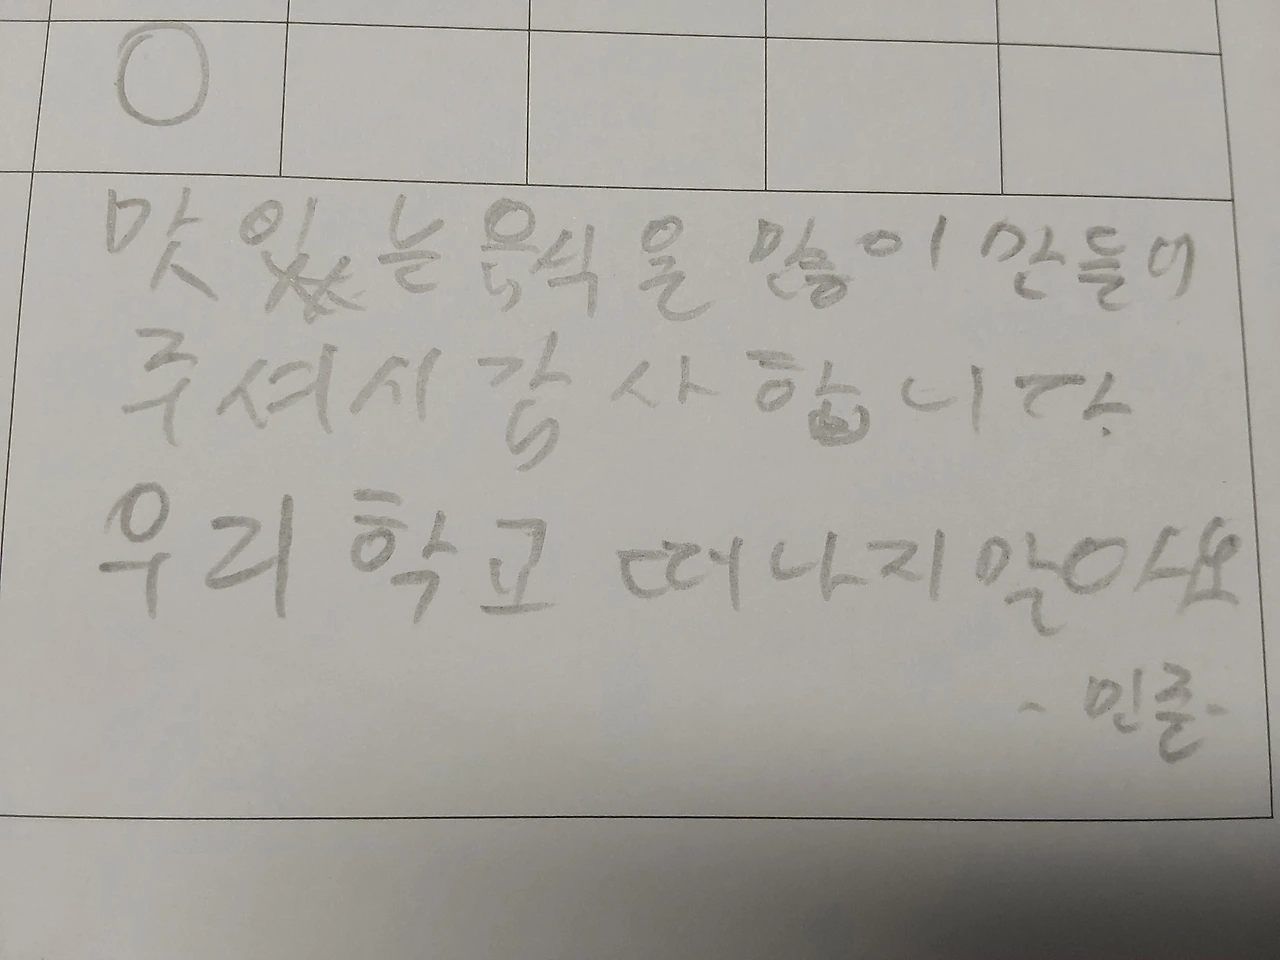 맛있는 음식을 많이 만들어
주셔서 감사합니다.
우리 학교 떠나지 말아쇼
- 민률-